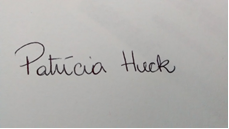 Patrícia Huck